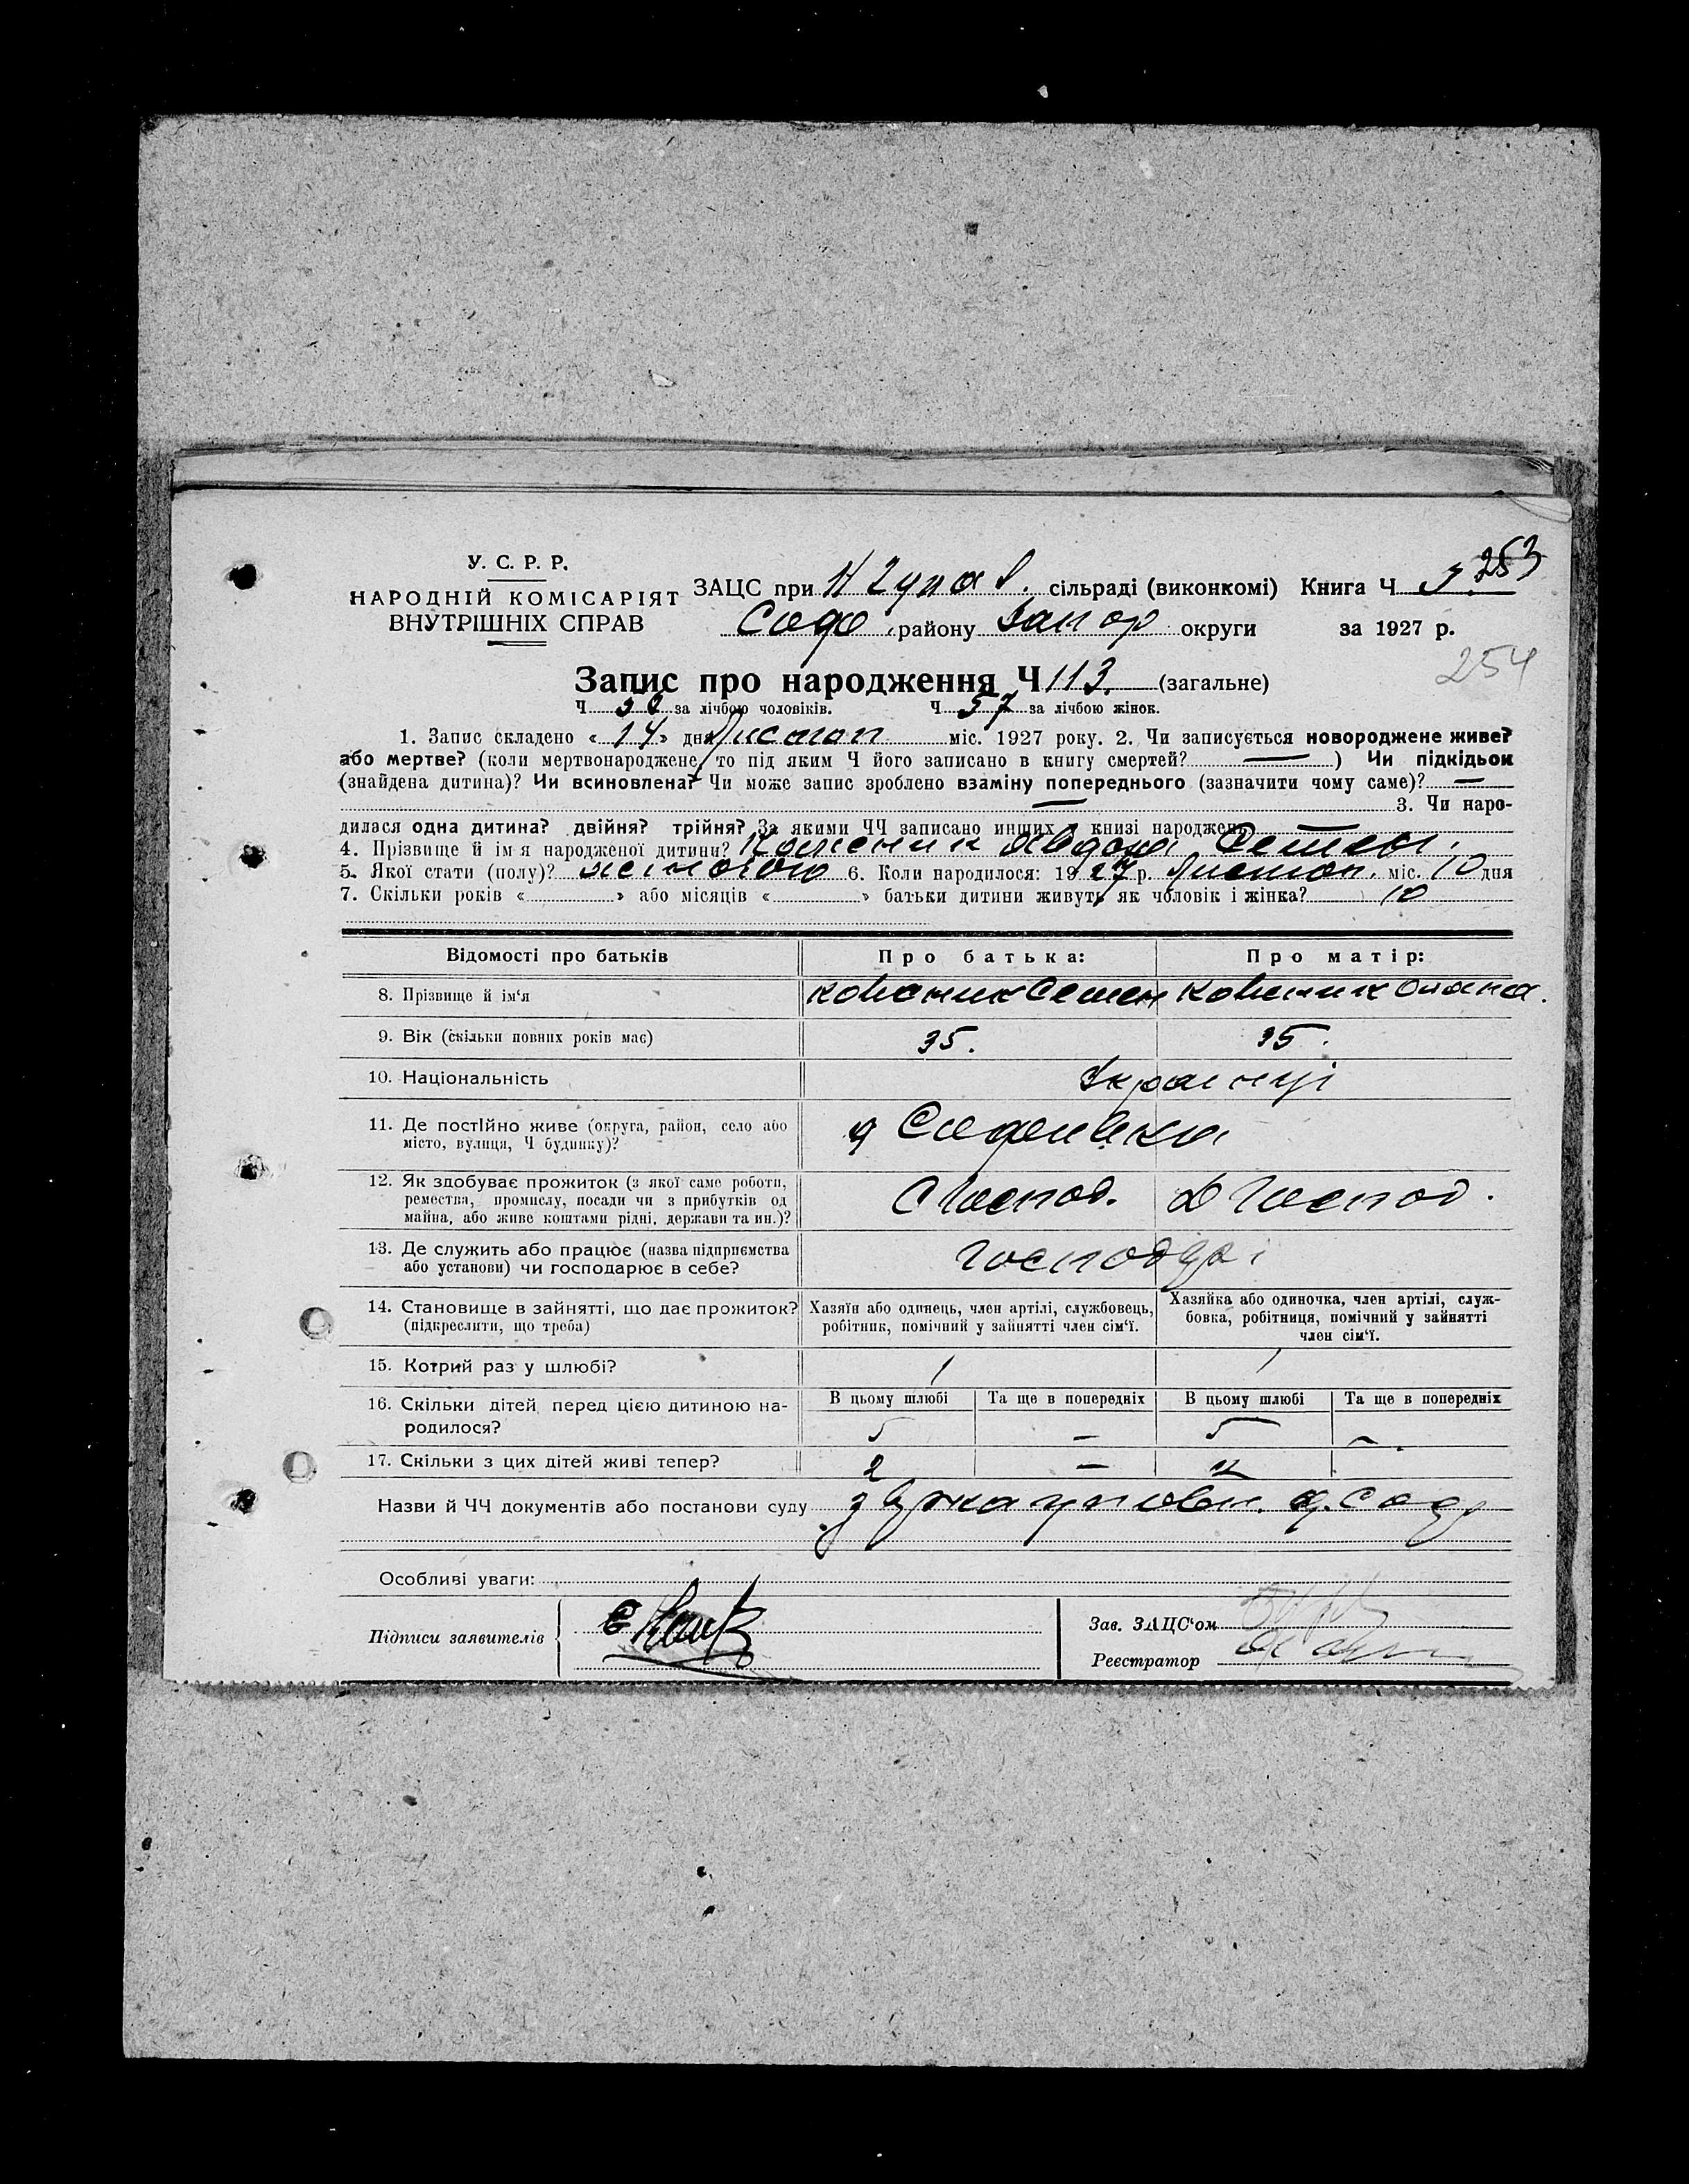 253
У. С. Р. Р.
НАРОДНІЙ КОМІСАРІЯТ
ВНУТРІШНІХ СПРАВ
ЗАЦС при сільраді (виконкомі) Книга Ч
району Запор округи за 1927 р.
254
Запис про народження Ч 113 (загальне)
Ч за лічбою чоловіків. Ч 57 за лічбою жінок.
1. Запис складено « 14 » дня Листоп міс. 1927 року. 2. Чи записується новороджене живе?
або мертве? (коли мертвонароджене, то під яким Ч його записано в книгу смертей? — ) Чи підкідьок
(знайдена дитина)? Чи всиновлена? Чи може запис зроблено взаміну попереднього (зазначити чому саме)? —
— 3. Чи наро-
дилася одна дитина? двійня? трійня? За якими ЧЧ записано инших в книзі народжень —
4. Прізвище й ім'я народженої дитини?
5. Якої стати (полу)? жіночою 6. Коли народилося: 1927 р. Листоп. міс. 10 дня
7. Скільки років « » або місяців « » батьки дитини живуть як чоловік і жінка? 10
Відомості про батьків Про батька: Про матір:
8. Прізвище й ім'я Семен
9. Вік (скільки повних років має) 35. 35.
10. Національність Українці
11. Де постійно живе (округа, район, село або
місто, вулиця, Ч будинку)?
12. Як здобуває прожиток (з якої саме роботи,
ремества, промислу, посади чи з прибутків од
майна, або живе коштами рідні, держави та ин.)?
С Господ. Д Господ.
13. Де служить або працює (назва підприємства
або установи) чи господарює в себе?
14. Становище в зайнятті, що дає прожиток?
(підкреслити, що треба)
Хазяїн або одинець, член артілі, службовець,
робітник, помічний у зайнятті член сім'ї.
Хазяйка або одиночка, член артілі, служ-
бовка, робітниця, помічний у зайнятті
член сім'ї.
15. Котрий раз у шлюбі? 1 1
16. Скільки дітей перед цією дитиною на-
родилося?
В цьому шлюбі Та ще в попередніх В цьому шлюбі Та ще в попередніх
5 — 5 —
17. Скільки з цих дітей живі тепер? 2 —
Назви й ЧЧ документів або постанови суду
Особливі уваги:
Підписи заявителів
Зав. ЗАЦС'ом
Реєстратор